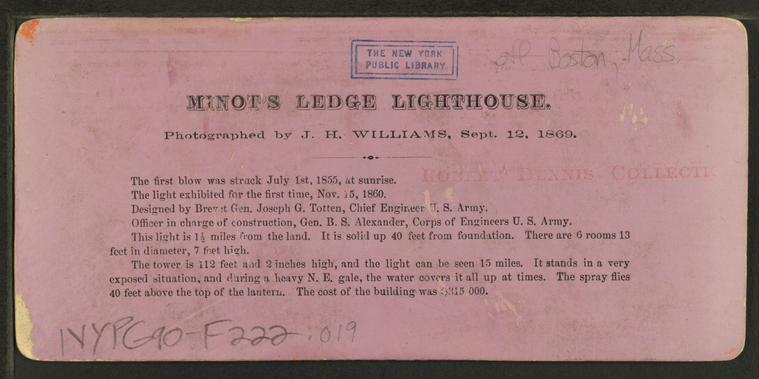 THE NEW YORK
PUBLIC LIBRARY
off Boston, Mass.
MINOT'S LEDGE LIGHTHOUSE.
Photographed by J. H. WILLIAMS, Sept. 12, 1869.
ROBERT DENNIS COLLECTI
The first blow was struck July 1st, 1855, at sunrise.
The light exhibited for the first time, Nov. 15, 1860.
Designed by Brevet Gen. Joseph G. Totten, Chief Engineer U. S. Army.
Officer in charge of construction, Gen. B. S. Alexander, Corps of Engineers U. S. Army.
This light is 1½ miles from the land. It is solid up 40 feet from foundation. There are 6 rooms 13
feet in diameter, 7 feet high.
The tower is 112 feet and 2 inches high, and the light can be seen 15 miles. It stands in a very
exposed situation, and during a heavy N. E. gale, the water covers it all up at times. The spray flies
40 feet above the top of the lantern. The cost of the building was $315 000.
NYPG90-F222.019